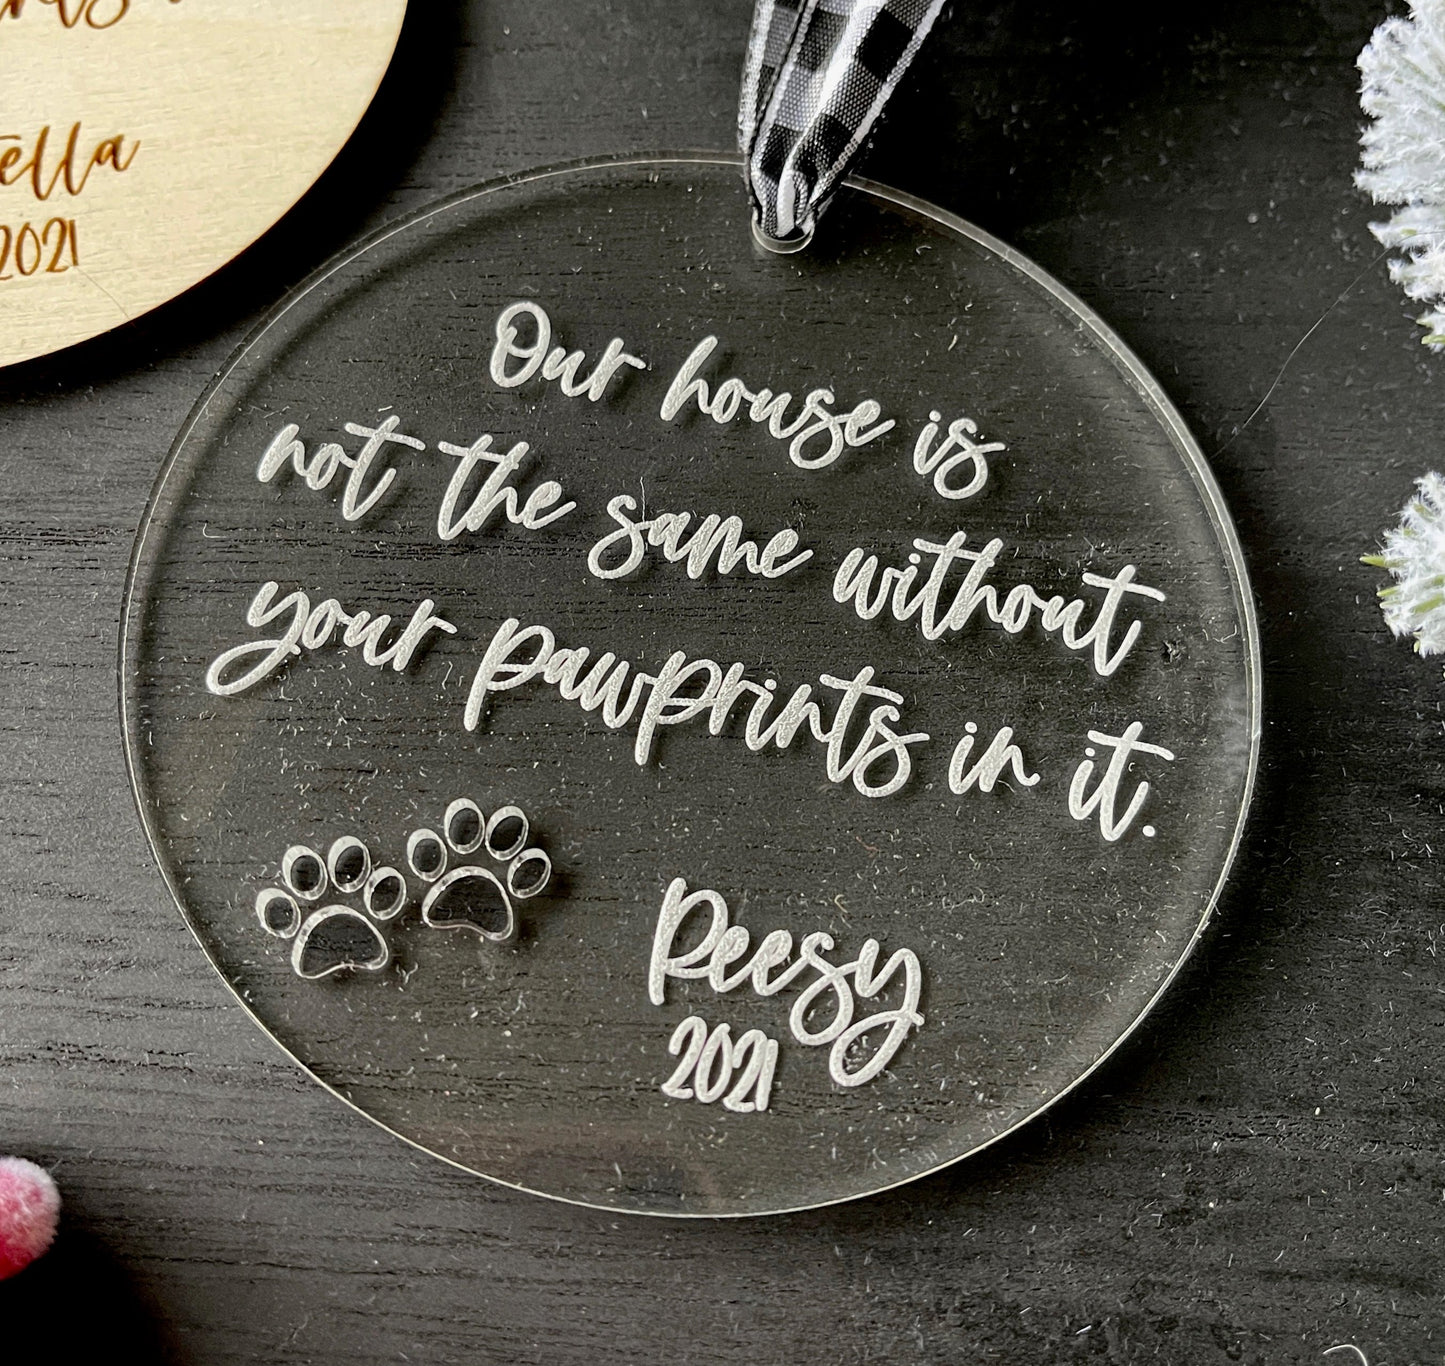 2021
Our house is
not the same without
your pawprints in it.
Peesy
2021